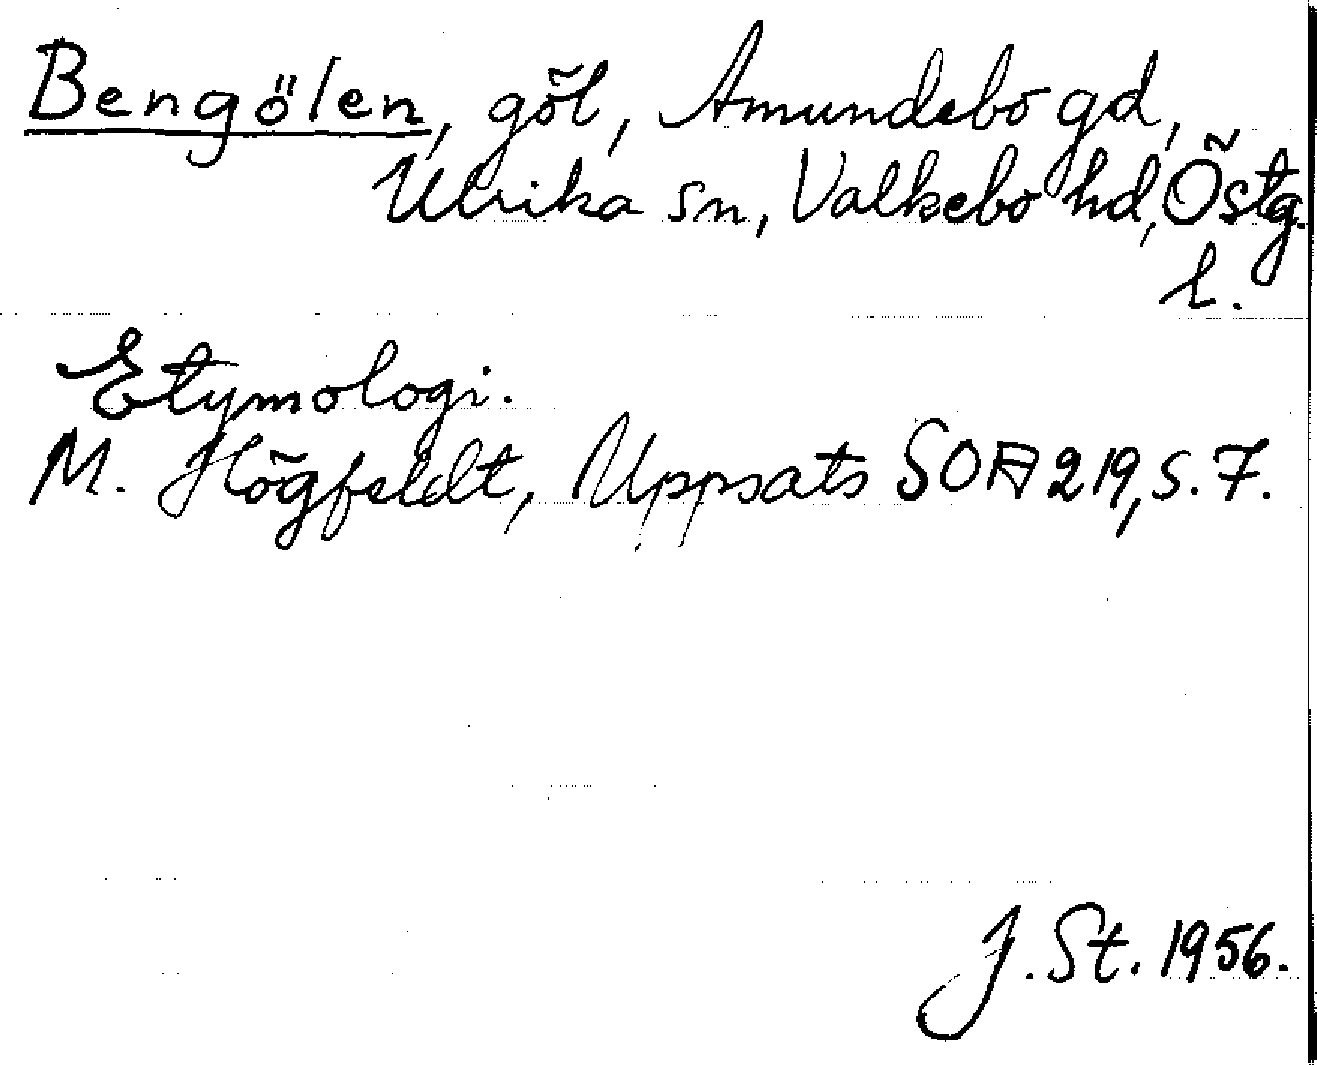 Bengölen, göl, Amundebo gd,
Ulrika sn, Valkebo hd, Östg.
l.
Etymologi.
M. Högfeldt, Uppsats SOA 219, s. 7.
J. St. 1956.